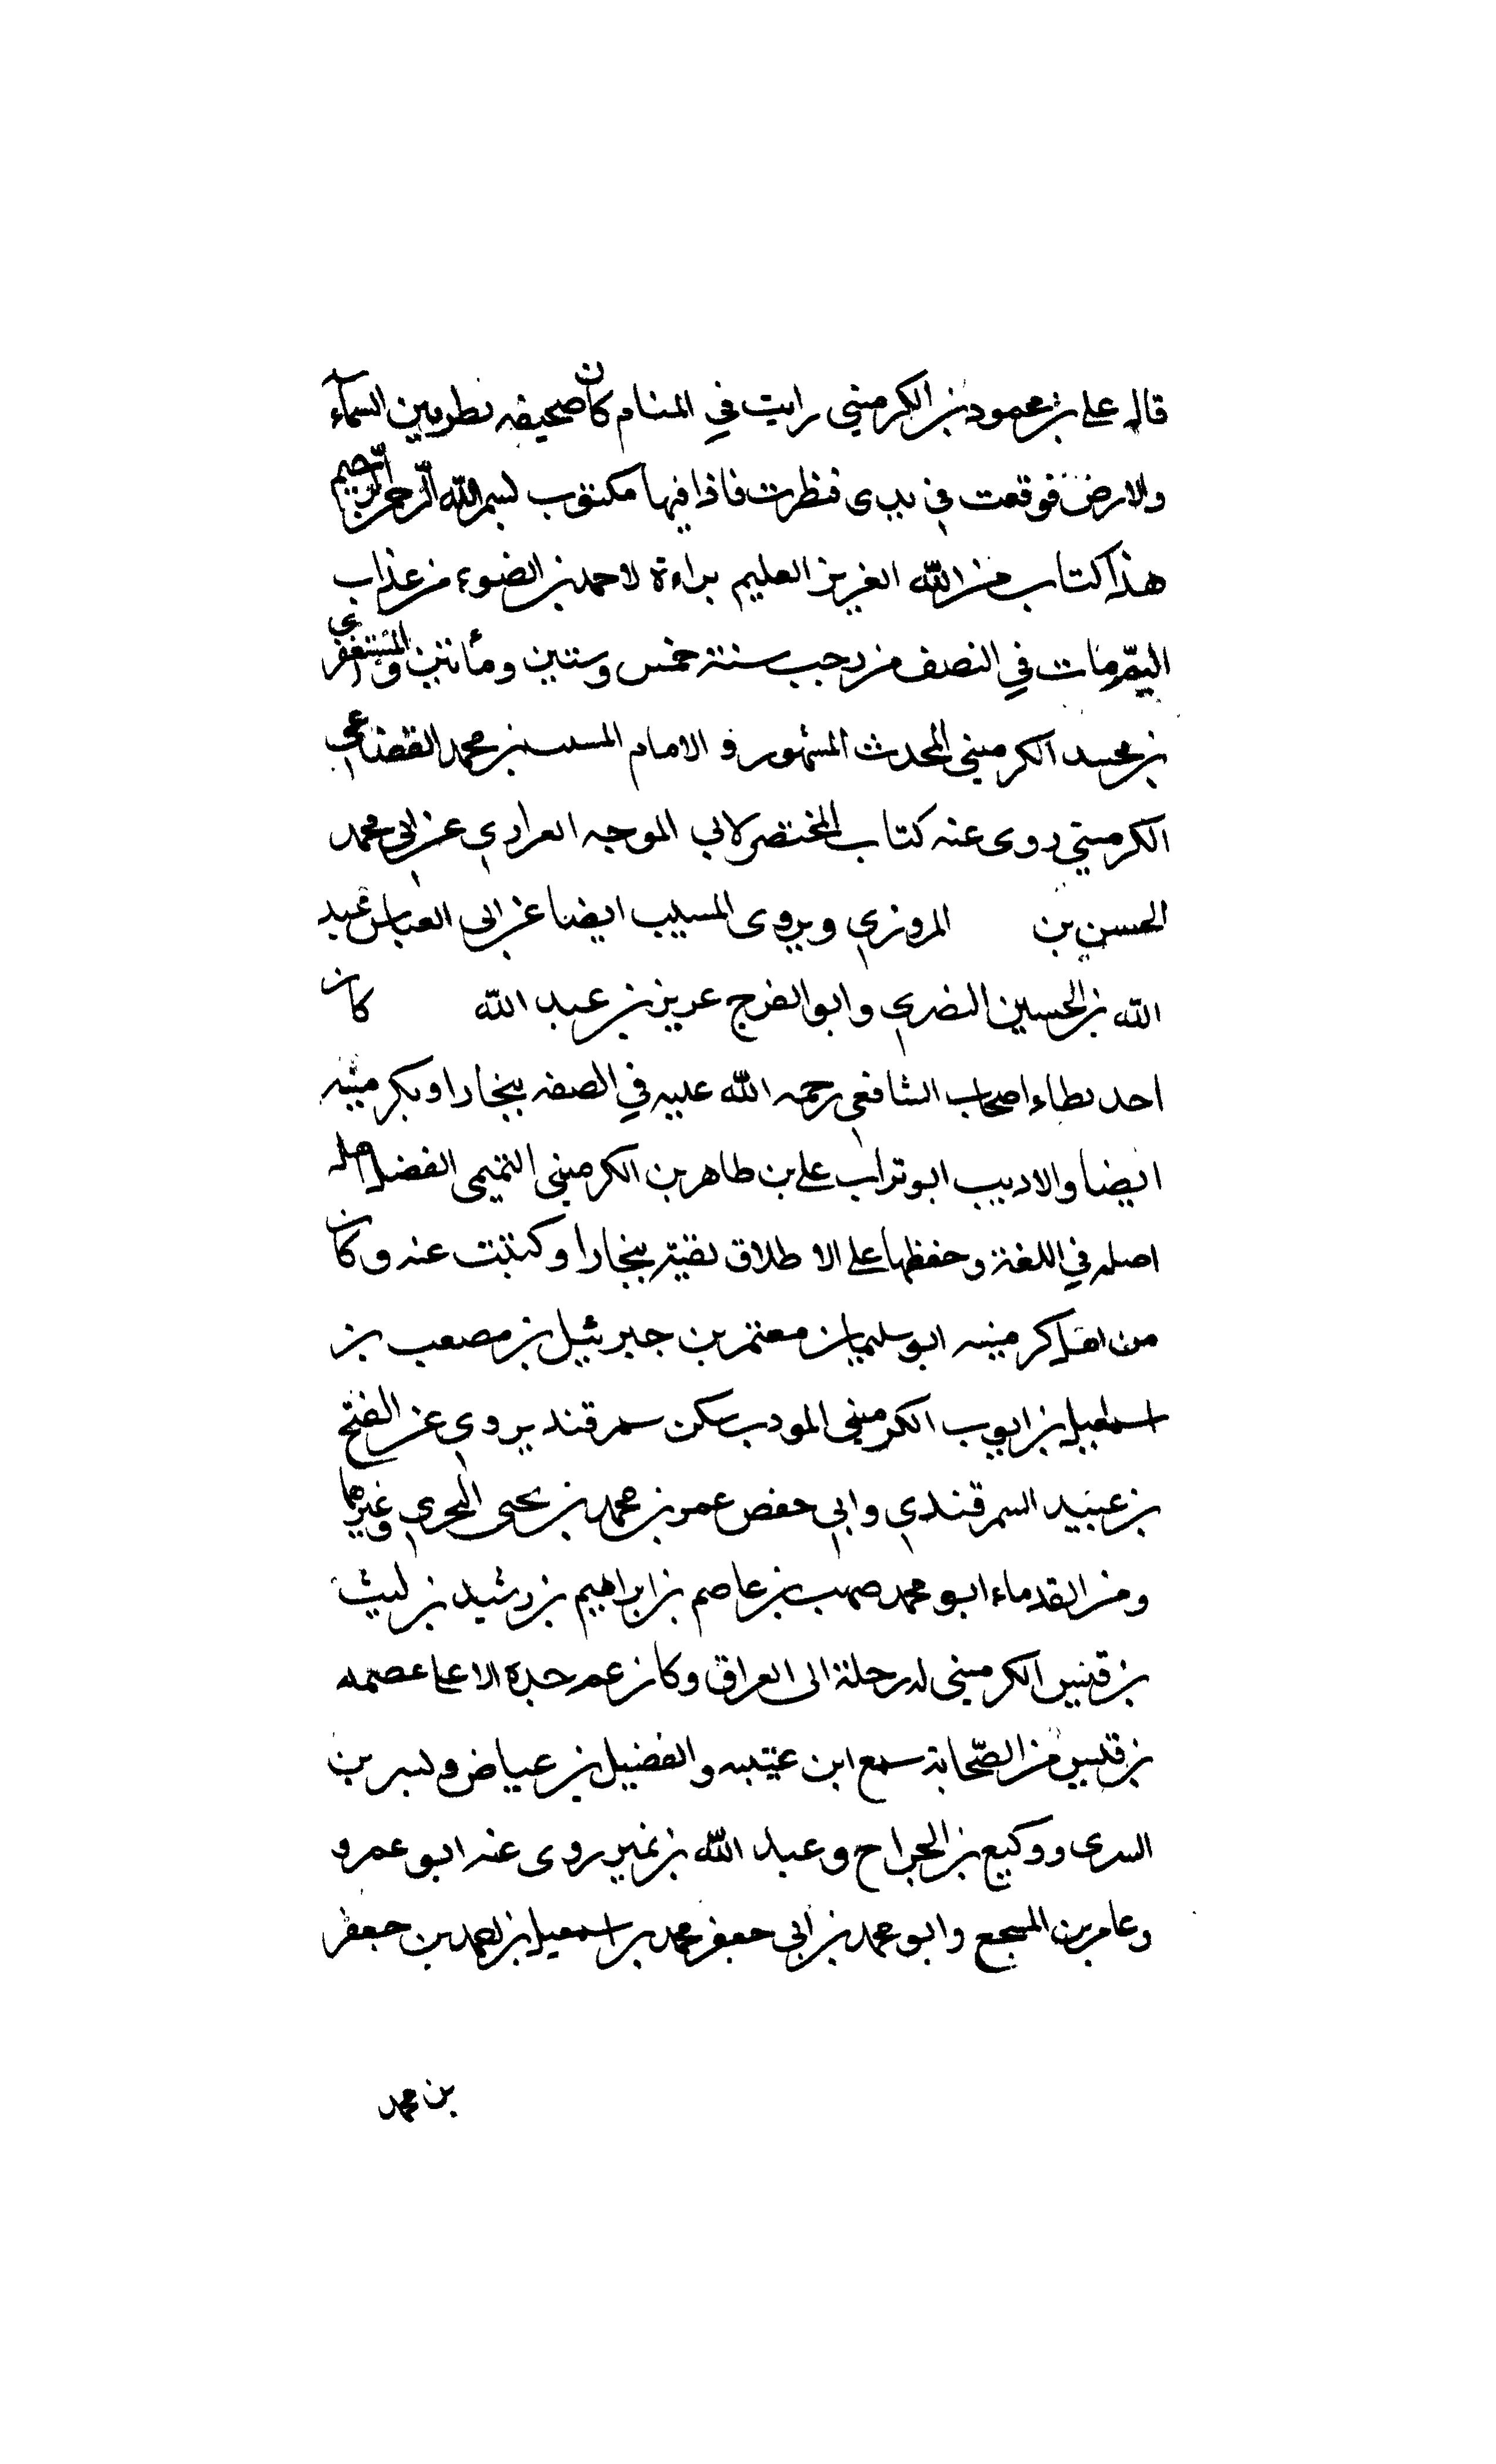 قال على بن محمود بن الكرمينى رايت في المنام كان صحيفه تطير بين السمآء
والارض فوقعت في يدى فنظرت فاذا فيها مكتوب بسم الله الرحمن الرحيم
هذا كتاب من الله العزيز العليم براءة لاحمد بن الضوء من عذاب
اليم مات في النصف من رجب سنة خمس وستين ومأتين والمستغفرى
بن محمد الكرمينى المحدث المشهور و الامام المسيب بن محمد القضاعى
الكرمينى روى عنه كتاب المختصر لابى الموجه الفزارى عن ابى محمد
الحسن بن المروزى ويروى المسيب ايضا عن ابى العباس عبد
الله بن الحسين النضرى وابو الفرج عزيز بن عبد الله كان
احد اصحاب الشافعى رحمه الله عليه في الصفه ببخارا وبكرمينيه
ايضا والاديب ابو تراب على بن طاهر بن الكرمينى التميمى
اصله في اللغة وحفظها على الاطلاق لقيته ببخارا وكتبت عنه وكان
من اهل كرمينيه ابو سليمان معتمر بن جبرئيل بن مصعب بن
اسمعيل بن ايوب الكرمينى المودب سكن سمرقند يروى عن الفتح
بن عبيد السمرقندى وابى حفص عمر بن محمد بن يحيى البحرى وغيرهما
ومن القدماء ابو محمد صهيب بن عاصم بن ابراهيم بن رشيد بن ليث
بن قيس الكرمينى له رحلة الى العراق وكان عم جده الاعلى عصمه
بن قيس من الصّحابة سمع ابن عيينه والفضيل بن عياض وبشر بن
السرى ووكيع بن الجراح وعبد الله بن نمير روى عنه ابو عمرو
وعامر بن المسجع وابو محمد بن ابى جعفر محمد بن اسمعيل بن احمد بن جعفر
بن محمد